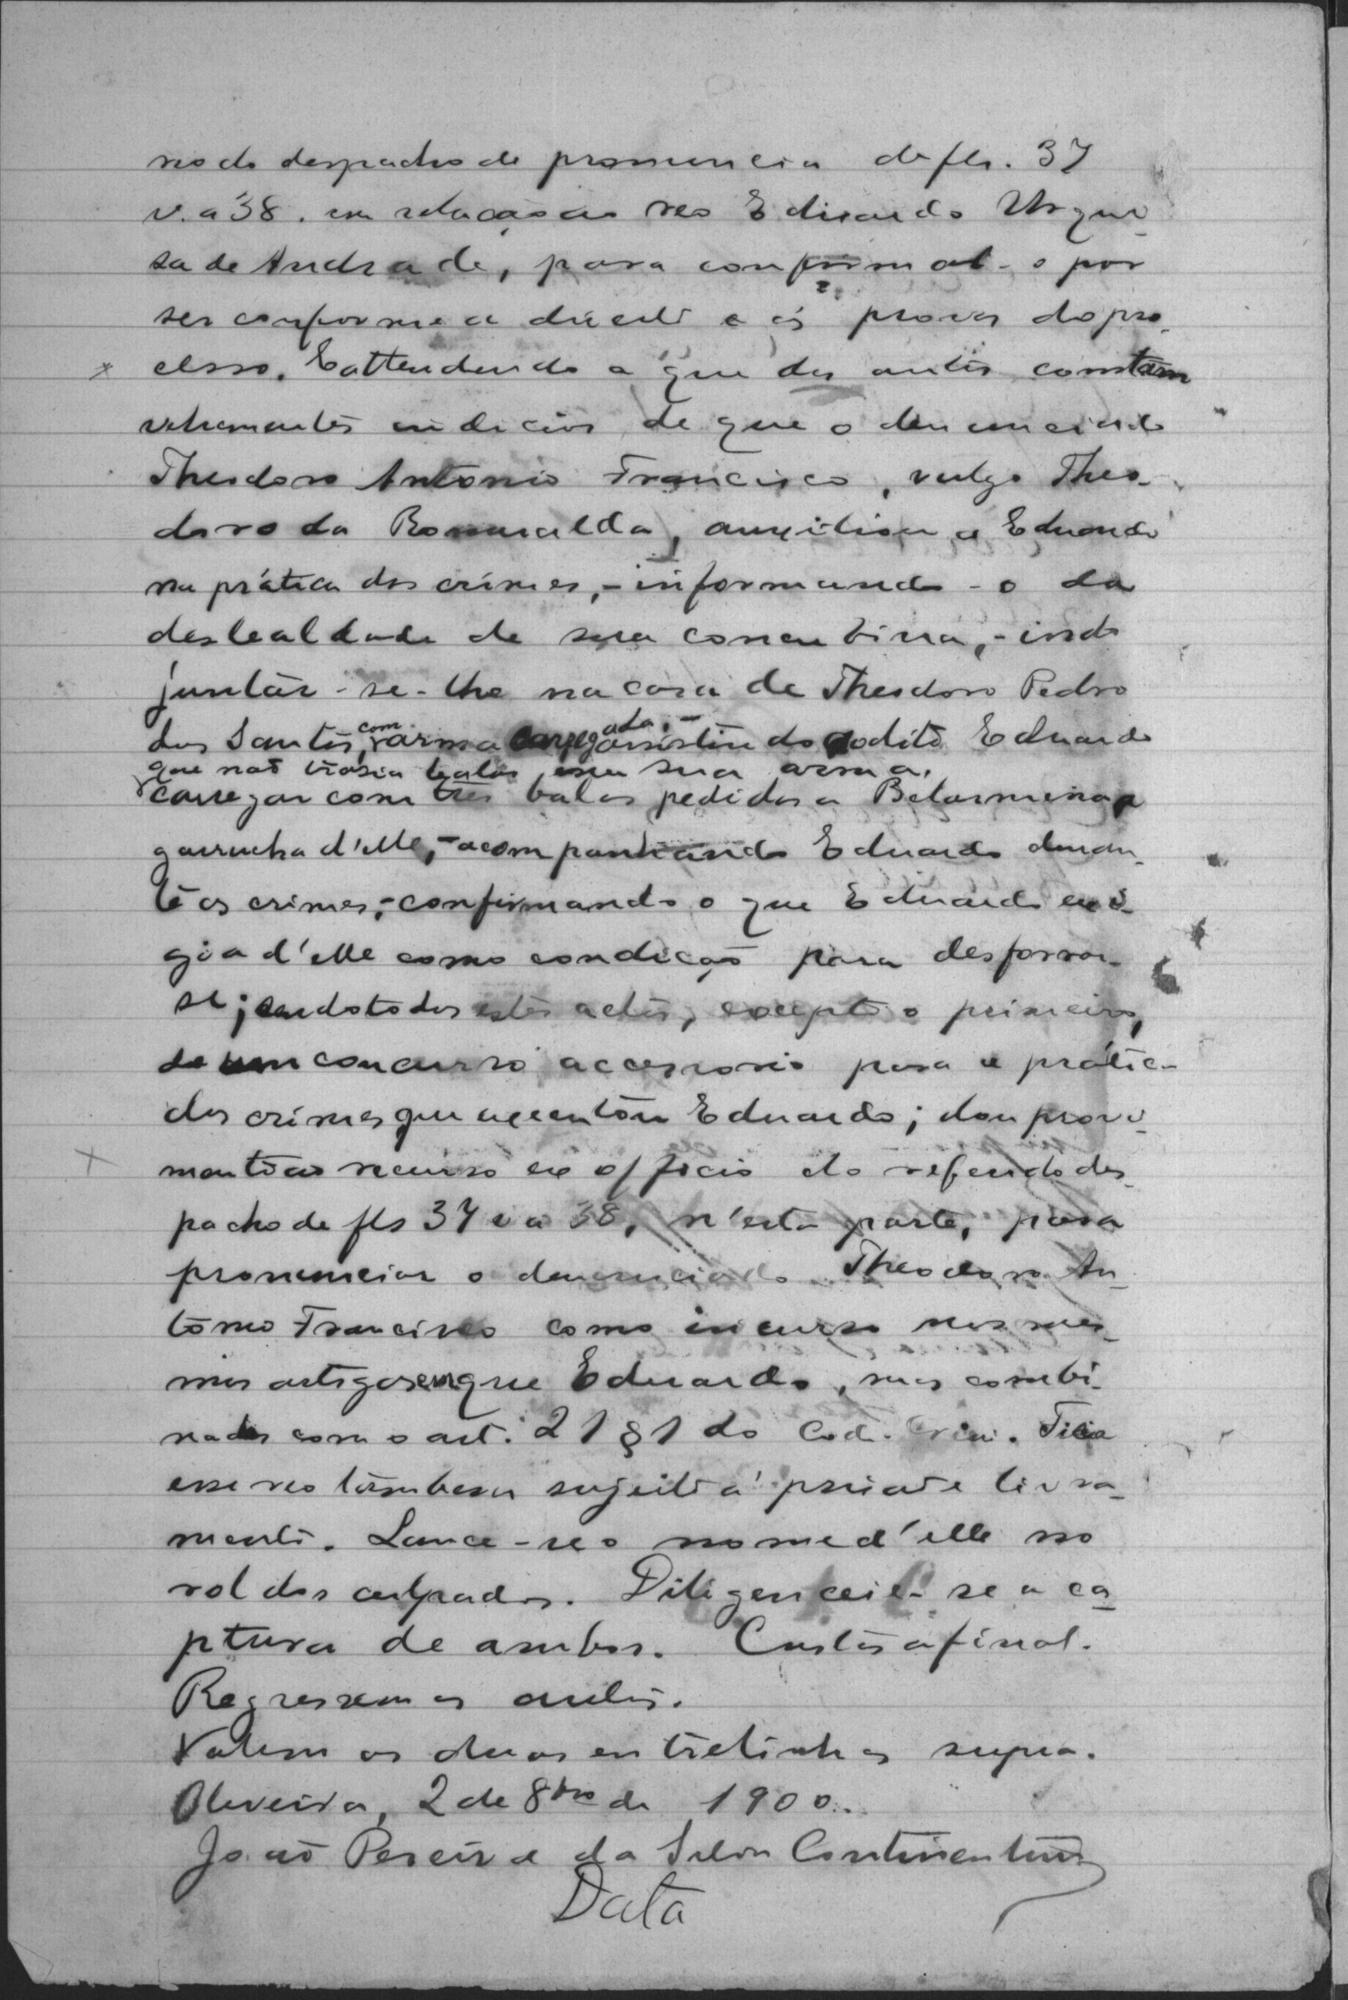 rio do despacho de pronuncia de fls. 37
v. a 38. em relação ao reo Eduardo Urque
sa de Andrade, para confirmal-o por
ser conforme a direito e ás provas do pro
cesso. E attendendo a que dos autos constam
vehementes indicios de que o denunciado
Theodoro Antonio Francisco, vulgo Theo-
doro da Romualda, auxiliou a Eduardo
na prática dos crimes, - informando-o da
deslealdade de sua concubina, - indo
juntar-se-lhe na casa de Theodoro Pedro
dos Santos, com arma carregada, - assistindo o dito Eduardo
que não trasia balas em sua arma,
carregar com tres balas pedidas a Belarmino a
garrucha d'elle, - acompanhando Eduardo duran-
te os crimes; - confirmando o que Eduardo exi-
gia d'elle como condição para desforrar-
se; sendo todos estes actos, excepto o primeiro,
de um concurso accessorio para a prática
dos crimes que executou Eduardo; dou provi-
mento ao recurso ex officio do referido des-
pacho de fls 37 v a 38, n'esta parte, para
pronunciar o denunciado Theodoro An-
tonio Francisco como incurso nos mes-
mos artigos em que Eduardo, mas combi-
nados com o art. 21 § 1 do Cod. Crim. Fica
esse reo tambem sujeito á prisão e livra-
mento. Lance-se o nome d'elle no
rol dos culpados. Diligencie-se a ca
ptura de ambos. Custas afinal.
Regressem os autos.
Valem as duas entrelinhas supra.
Oliveira, 2 de 8bro de 1900.
João Pereira da Silva Continentino
Data